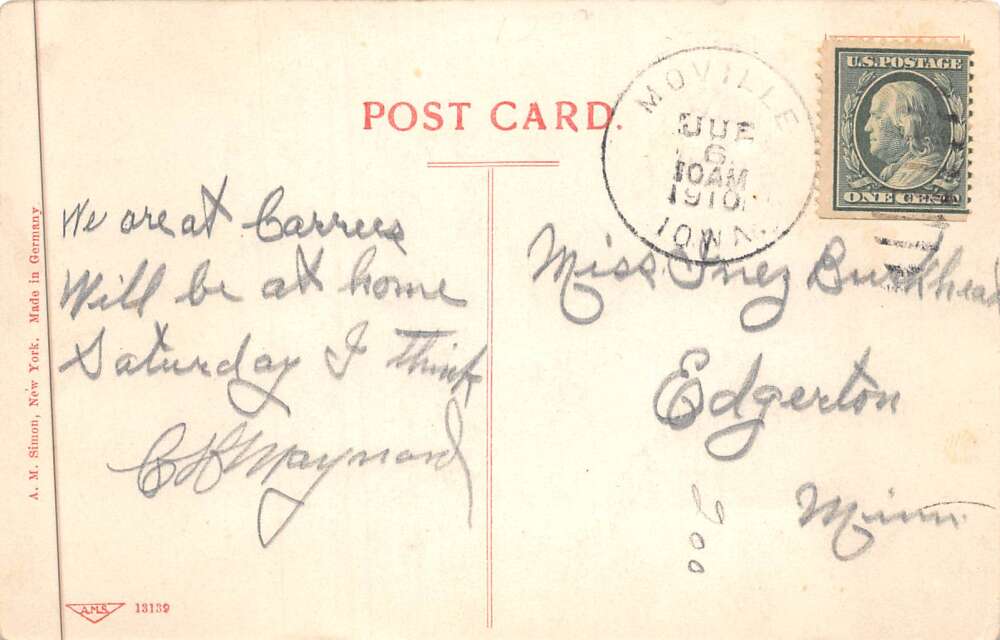 POST CARD.
MOVILLE
6
10AM
1910
IOWA
U.S. POSTAGE
ONE CENT
We are at Carries
Will be at home
Saturday I think
C H Maynard
Miss Inez Burkhead
Edgerton
Minn.
200
A. M. Simon, New York. Made in Germany
A.M.S. 13139